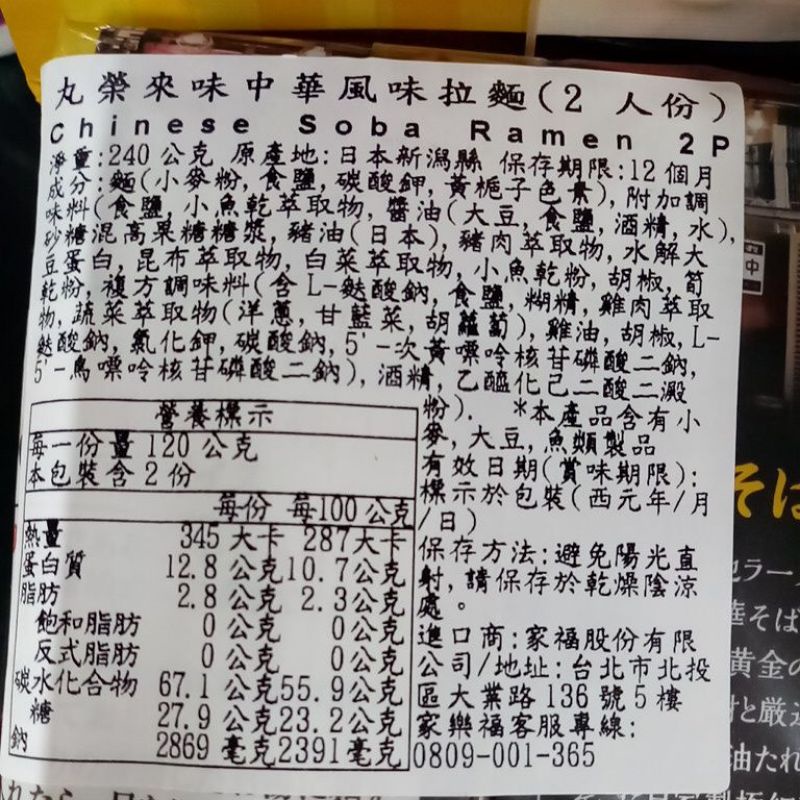 丸榮來味中華風味拉麵(2 人份)
Chinese Soba Ramen 2P
淨重:240 公克 原產地:日本新潟縣 保存期限:12 個月
成分:麵(小麥粉, 食鹽, 碳酸鉀, 黃梔子色素), 附加調
味料(食鹽, 小魚乾萃取物, 醬油(大豆, 食鹽, 酒精, 水),
砂糖混高果糖糖漿, 豬油(日本), 豬肉萃取物, 水解大
豆蛋白, 昆布萃取物, 白菜萃取物, 小魚乾粉, 胡椒, 筍
乾粉, 複方調味料(含 L-麩酸鈉, 食鹽, 糊精, 雞肉萃取
物, 蔬菜萃取物(洋蔥, 甘藍菜, 胡蘿蔔), 雞油, 胡椒, L-
麩酸鈉, 氯化鉀, 碳酸鈉, 5'-次黃嘌呤核苷磷酸二鈉,
5'-鳥嘌呤核苷磷酸二鈉), 酒精, 乙醯化己二酸二澱
粉). *本產品含有小
麥, 大豆, 魚類製品
有效日期(賞味期限):
標示於包裝(西元年/月
/日)
保存方法:避免陽光直
射, 請保存於乾燥陰涼
處。
進口商:家福股份有限
公司/地址:台北市北投
區大業路 136 號 5 樓
家樂福客服專線:
0809-001-365
營養標示
每一份量 120 公克
本包裝含 2 份
每份 每100 公克
熱量 345 大卡 287大卡
蛋白質 12.8 公克 10.7公克
脂肪 2.8 公克 2.3公克
飽和脂肪 0 公克 0公克
反式脂肪 0 公克 0公克
碳水化合物 67.1 公克 55.9公克
糖 27.9 公克 23.2公克
鈉 2869 毫克 2391毫克
中
そば
ラー
華そば
黄金の
と厳
油たれ